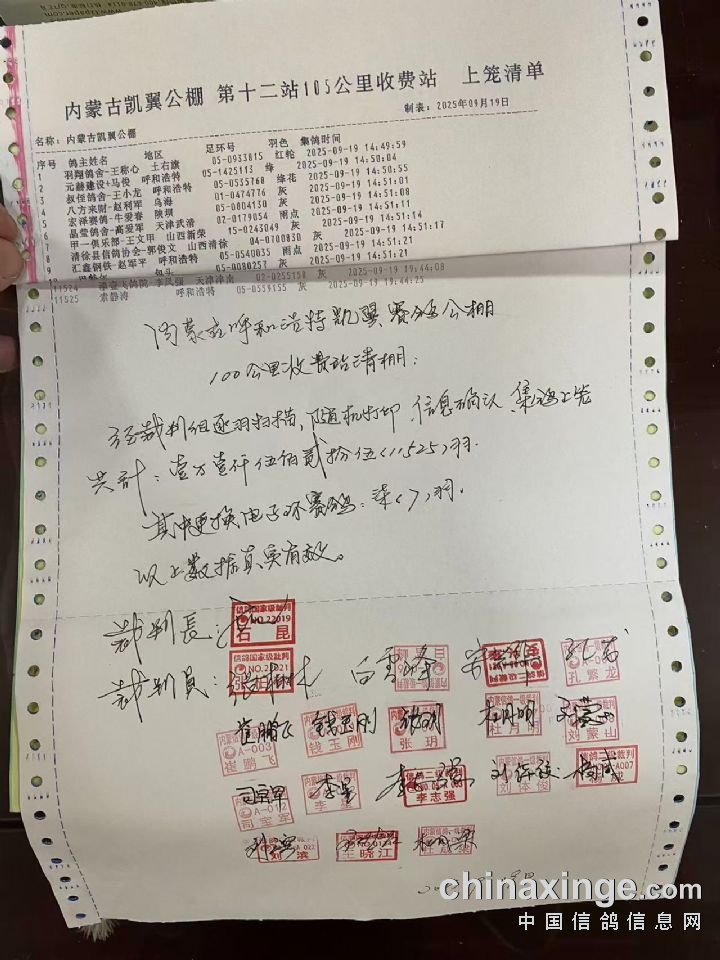 内蒙古凯翼公棚 第十二站105公里收费站 上笼清单
制表: 2025年09月19日
名称: 内蒙古凯翼公棚
序号 鸽主姓名 地区 足环号 羽色 集鸽时间
1 羽翔鸽舍-王称心 土右旗 05-0933815 红轮 2025-09-19 14:49:59
2 元赫建设+马俊 呼和浩特 05-1425113 绛 2025-09-19 14:50:04
3 叔侄鸽舍-王小龙 呼和浩特 05-0535768 绛花 2025-09-19 14:50:55
4 八方来财-赵利军 乌海 01-0474776 灰 2025-09-19 14:51:01
5 宏泽赛鸽-牛爱春 陕坝 05-0804130 灰 2025-09-19 14:51:08
6 晶莹鸽舍-高爱军 天津武清 02-0179054 雨点 2025-09-19 14:51:11
7 甲一俱乐部-王文甲 山西新荣 15-0243049 灰 2025-09-19 14:51:14
8 清徐县信鸽协会-郭俊文 山西清徐 04-0700830 灰 2025-09-19 14:51:17
9 汇鑫钢铁-赵军平 呼和浩特 05-0540035 雨点 2025-09-19 14:51:21
包头 05-0080257 灰 2025-09-19 14:51:21
11524 李凤强 天津津南 02-0255158 灰 2025-09-19 19:44:08
11525 索静涛 呼和浩特 05-0559155 灰 2025-09-19 19:44:25
内蒙古呼和浩特凯翼赛鸽公棚
100公里收费站清棚:
经裁判组逐羽扫描,随机打印、信息确认、集鸽上笼
共计:壹万壹仟伍佰贰拾伍(11525)羽.
其中更换电子环赛鸽:柒(7)羽.
以上数据真实有效。
裁判長:
信鸽国家级裁判
NO.22019
石昆
裁判員:
信鸽国家级裁判
孔繁龙
崔鹏飞 钱玉刚 张玥 杜月明 刘蒙山
A-003
崔鹏飞
钱玉刚
张玥
杜月明
刘蒙山
司宝军 李志强 刘体俊
A-012
司宝军
信鸽二级裁判
李志强
刘体俊
A-007
刘滨 王晓江
A-022
刘滨
王晓江
chinaxinge.com
中国信鸽信息网